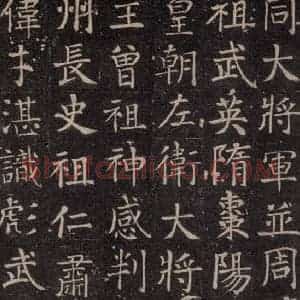 同大將軍並周
祖武英隋棗陽
皇朝左衛大將
王曾祖神感判
州長史祖仁肅
偉才湛識彪武